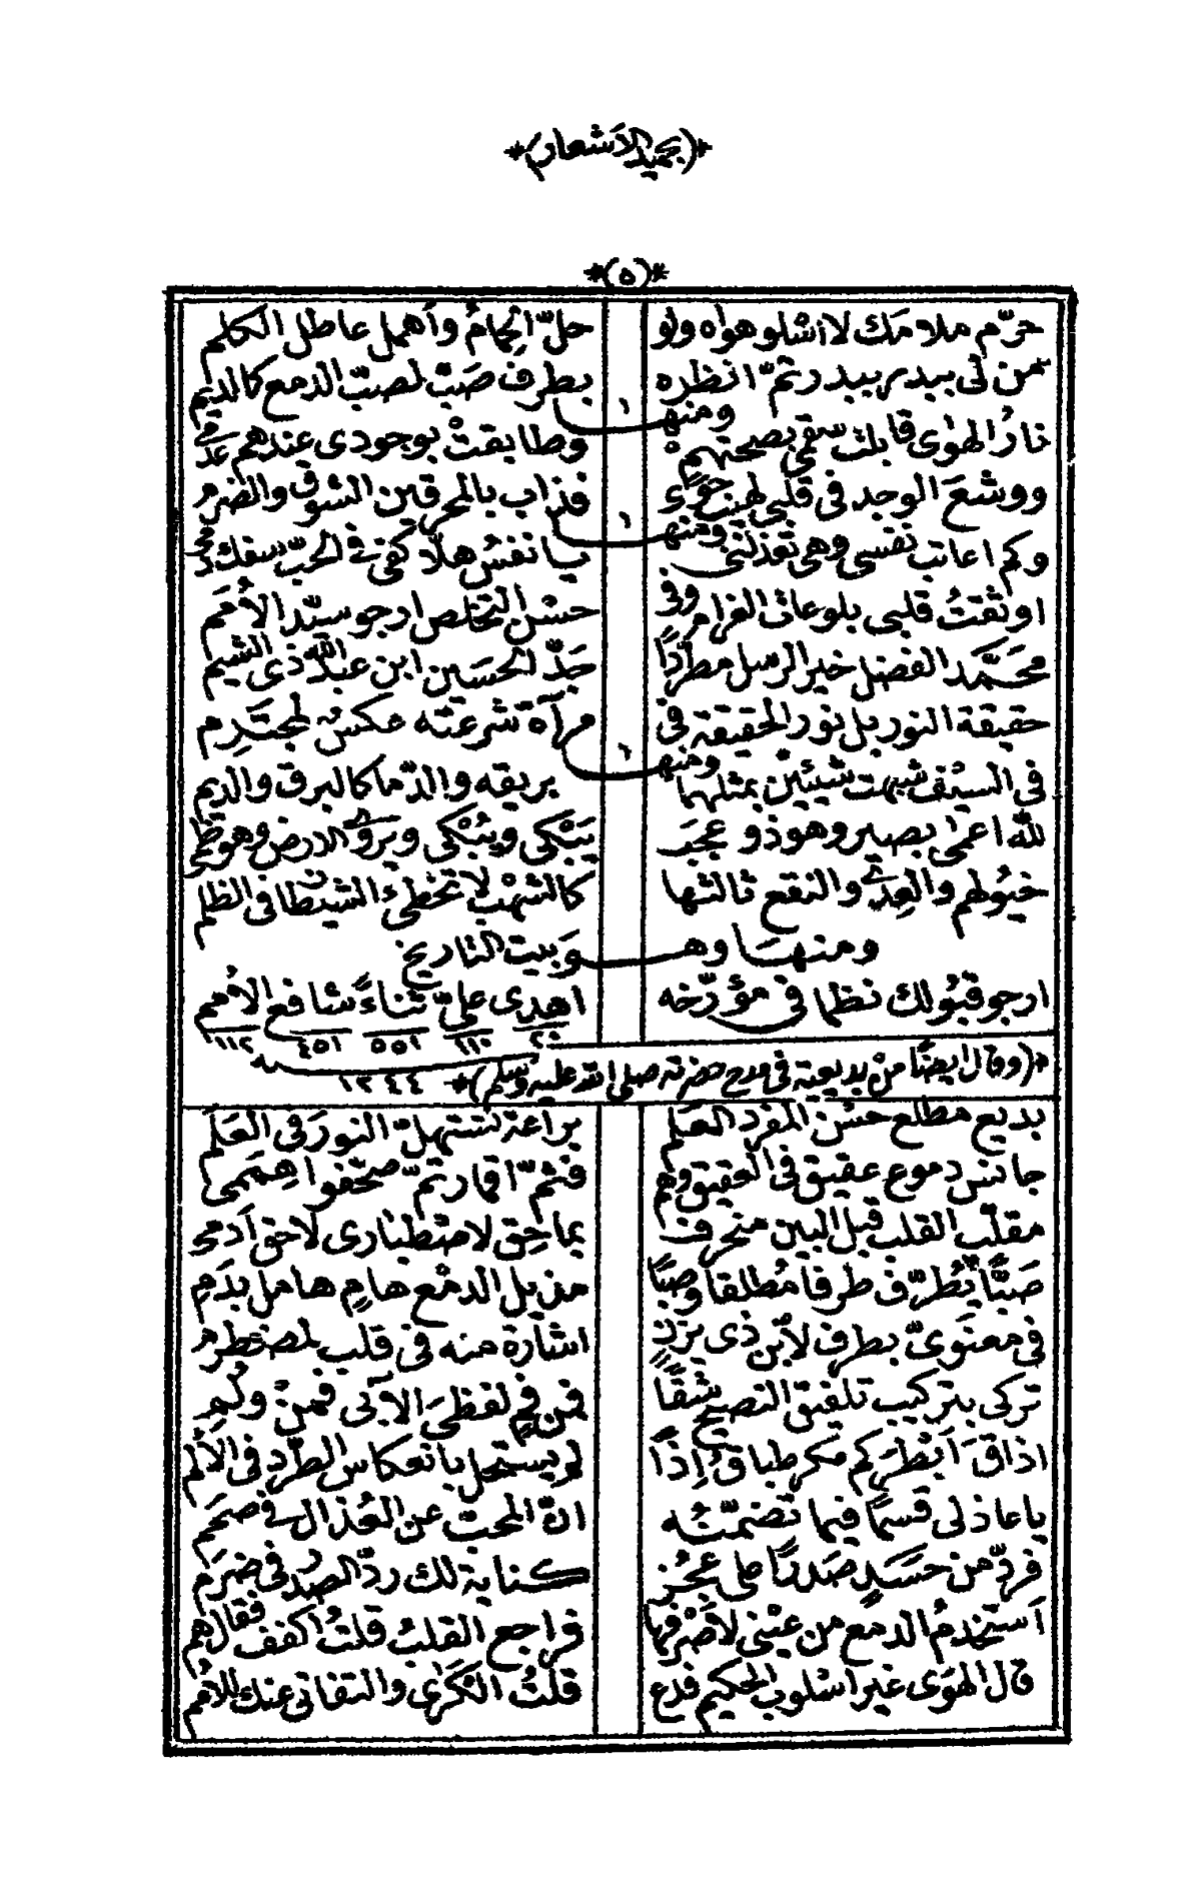 *(بحميد الأشعار)*
*(٥)*
حرّم ملامَك لا اسْلو هواه ولو حلّ الحِمامُ وأهمل عاطل الكلم
من لى ببدر ببدر تمّ انظره بطرف صَبّ لصبّ الدمع كالديم
ومنها
نارُ الهوى قابلت سقمى بصحتهمْ وطابقتْ بوجودى عندهم عدمى
ووشعَ الوجد فى قلبى لهيب جوًى فذاب بالمحرقين الشوق والضرم
ومنها
وكم اعاتب نفسى وهى تعذلنى يا نفسُ هلّا كفى فى الحبّ سفك دمى
اوثقتُ قلبى بلوعات الغرام وفى حسْن التخلص ارجو سيّد الأُمَم
محَمَّد الفضل خير الرسل مطردًا جَدّ الحسَين ابن عبدالله ذى الشيم
حقيقة النور بل نور الحقيقة فى مرآة شرعته عكس لمجتَرِم
ومنها
فى السيْف شبهت شيئين بمثلهما بريقه والدّما كالبرق والديم
لله اعمى بصير وهو ذو عجَب يَبْكى ويُبْكى ويروى الارض وهو ظمى
خيُولهم والعِدى والنقع ثالثها كالشهْب لا تخطىء الشيطان فى الظلم
ومنهَا وهوَ بيت التاريخ
ارجو قبُولك نظما فى مؤرّخه اهدى علىّ ثناءً شافع الأُمم
٢٠ ١١٠ ٥٥١ ٤٥١ ١١٢
*(وقال ايضًا منْ بديعية فى مدح حضرته صلى الله عليه وسلم)* ١٢٤٤ سنه
بديع مطلع حسْن المفرد العَلم براعة تستهلّ النورَ فى العَلم
جانس دموع عقيق فى العقيق وهم فثمّ اقمار تمّ صحّفوا هِمَمى
مقلّب القلب قبل البين منحرف بما حِق لاصْطبارى لاحق أدمى
صَبًّا يُطَرّف طرفا مُطلقا وصبًا مذيل الدمْع هامٍ هامل بدَمِ
فى معنَوىّ بطرف لأبن ذى يزن اشارة منه فى قلب لمضطرم
تركى بتركيب تلفيق التصحيح شقًا فمن فمٍ لفظىَ الآتى فمنْ ولِمِ
اذاقَ اَبْطَرَكم مكر طباقُ إذًا لم يستحل بانعكاس الطّرد فى الألم
يا عاذلى قسمًا فيما تضمّنُه انّ المحبّ عن العُذال فى صَمَم
فردّ من حَسَدٍ صَدرًا على عجُز كناية لك ردّ الصدر فى ضرَم
اَستخدِمُ الدمع من عيْنى لأصْرفها فراجع القلبُ قلتُ اكفف فقال هم
قال الهوَى غير اسْلوب الحكيم فدع قلتُ الكَرَى والتفاتى عنك للأُمم